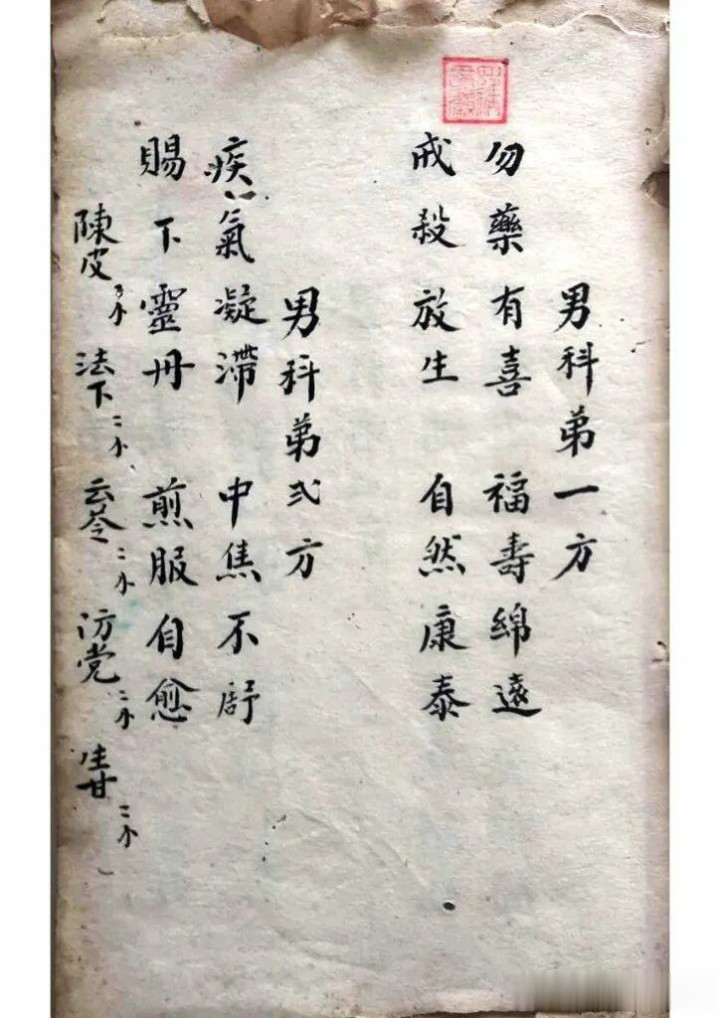 男科弟一方
勿藥有喜 福壽綿遠
戒殺放生 自然康泰
男科弟弍方
疾氣凝滯 中焦不舒
賜下靈丹 煎服自愈
陳皮 法下二 云苓二 汸党二 生甘二